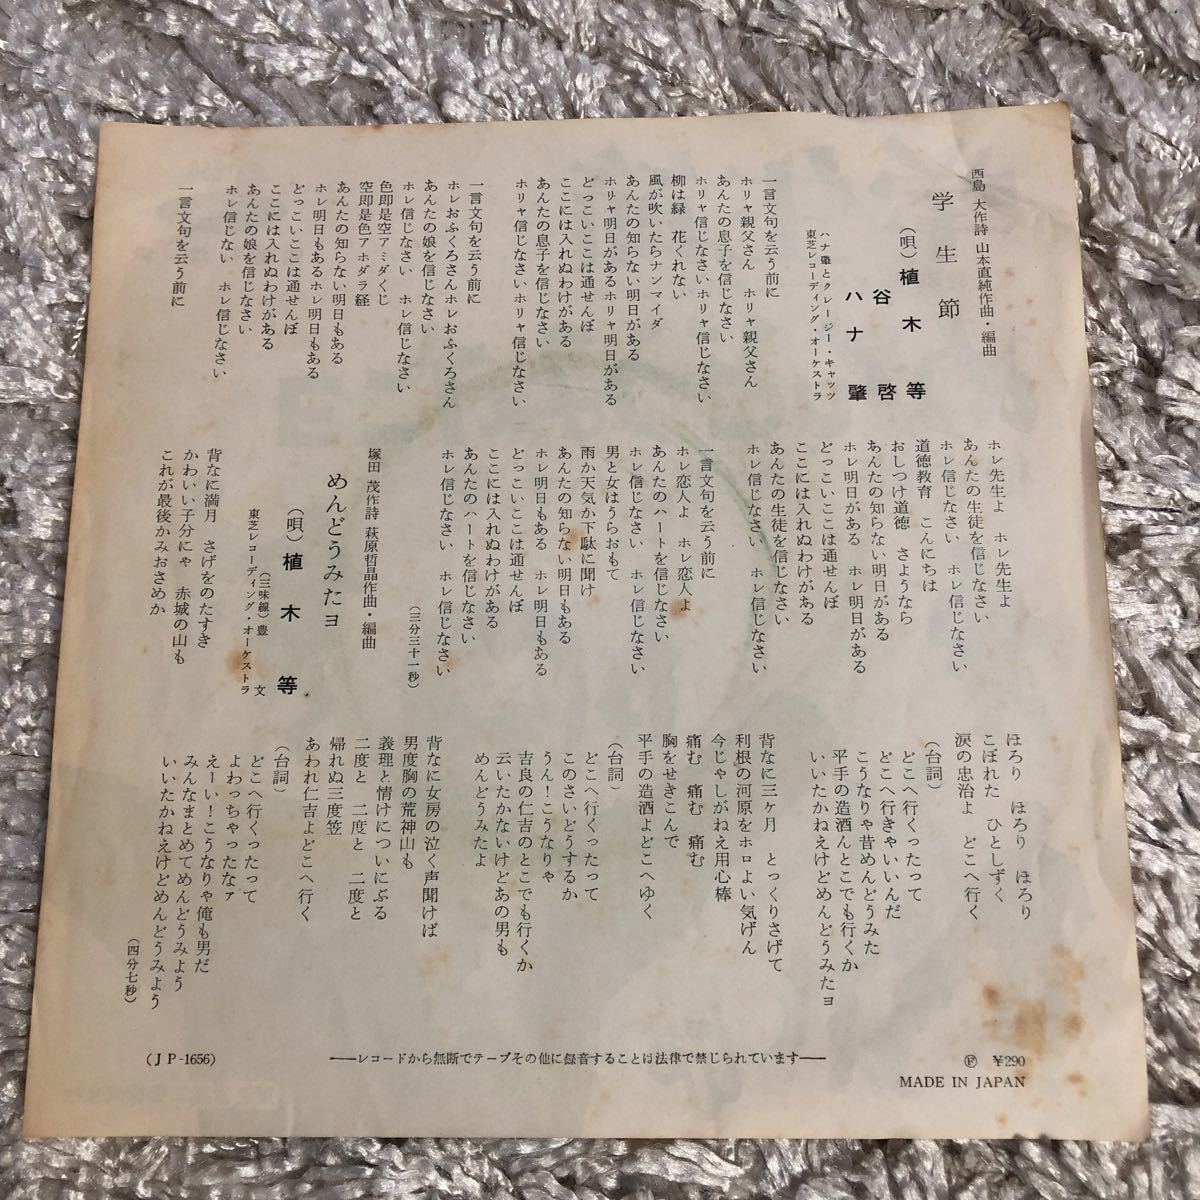 学生節
西島 大作詩 山本直純作曲・編曲
(唄) 植木 等
谷 啓
ハナ 肇
ハナ肇とクレージー・キャッツ
東芝レコーディング・オーケストラ
一言文句を云う前に
ホリャ親父さん ホリャ親父さん
あんたの息子を信じなさい
ホリャ信じなさいホリャ信じなさい
柳は緑 花くれない
風が吹いたらナンマイダ
あんたの知らない明日がある
ホリャ明日があるホリャ明日がある
どっこいここは通せんぼ
ここには入れぬわけがある
あんたの息子を信じなさい
ホリャ信じなさいホリャ信じなさい
一言文句を云う前に
ホレおふくろさんホレおふくろさん
あんたの娘を信じなさい
ホレ信じなさい ホレ信じなさい
色即是空アミダくじ
空即是色アホダラ経
あんたの知らない明日もある
ホレ明日もあるホレ明日もある
どっこいここは通せんぼ
ここには入れぬわけがある
あんたの娘を信じなさい
ホレ信じなさい ホレ信じなさい
一言文句を云う前に
ホレ先生よ ホレ先生よ
あんたの生徒を信じなさい
ホレ信じなさい ホレ信じなさい
道徳教育 こんにちは
おしつけ道徳 さようなら
あんたの知らない明日がある
ホレ明日がある ホレ明日がある
どっこいここは通せんぼ
ここには入れぬわけがある
あんたの生徒を信じなさい
ホレ信じなさい ホレ信じなさい
一言文句を云う前に
ホレ恋人よ ホレ恋人よ
あんたのハートを信じなさい
ホレ信じなさい ホレ信じなさい
男と女はうらおもて
雨か天気か下駄に聞け
あんたの知らない明日もある
ホレ明日もある ホレ明日もある
どっこいここは通せんぼ
ここには入れぬわけがある
あんたのハートを信じなさい
ホレ信じなさい ホレ信じなさい
(三分三十一秒)
塚田 茂作詩 萩原哲晶作曲・編曲
めんどうみたヨ
(唄) 植木 等
(三味線) 豊 文
東芝レコーディング・オーケストラ
背なに満月 さげをのたすき
かわいい子分にゃ 赤城の山も
これが最後かみおさめか
ほろり ほろり ほろり
こぼれた ひとしずく
涙の忠治よ どこへ行く
(台詞)
どこへ行くったって
どこへ行きゃいいんだ
こうなりゃ昔めんどうみた
平手の造酒んとこでも行くか
いいたかねえけどめんどうみたヨ
背なに三ヶ月 とっくりさげて
利根の河原をホロよい気げん
今じゃしがねえ用心棒
痛む 痛む 痛む
胸をせきこんで
平手の造酒よどこへゆく
(台詞)
どこへ行くったって
このさいどうするか
うん!こうなりゃ
吉良の仁吉のとこでも行くか
云いたかないけどあの男も
めんどうみたよ
背なに女房の泣く声聞けば
男度胸の荒神山も
義理と情けについにぶる
二度と 二度と 二度と
帰れぬ三度笠
あわれ仁吉よどこへ行く
(台詞)
どこへ行くったって
よわっちゃったなァ
えーい!こうなりゃ俺も男だ
みんなまとめてめんどうみよう
いいたかねえけどめんどうみよう
(四分七秒)
(JP-1656)
――レコードから無断でテープその他に録音することは法律で禁じられています――
Ⓕ ¥290
MADE IN JAPAN